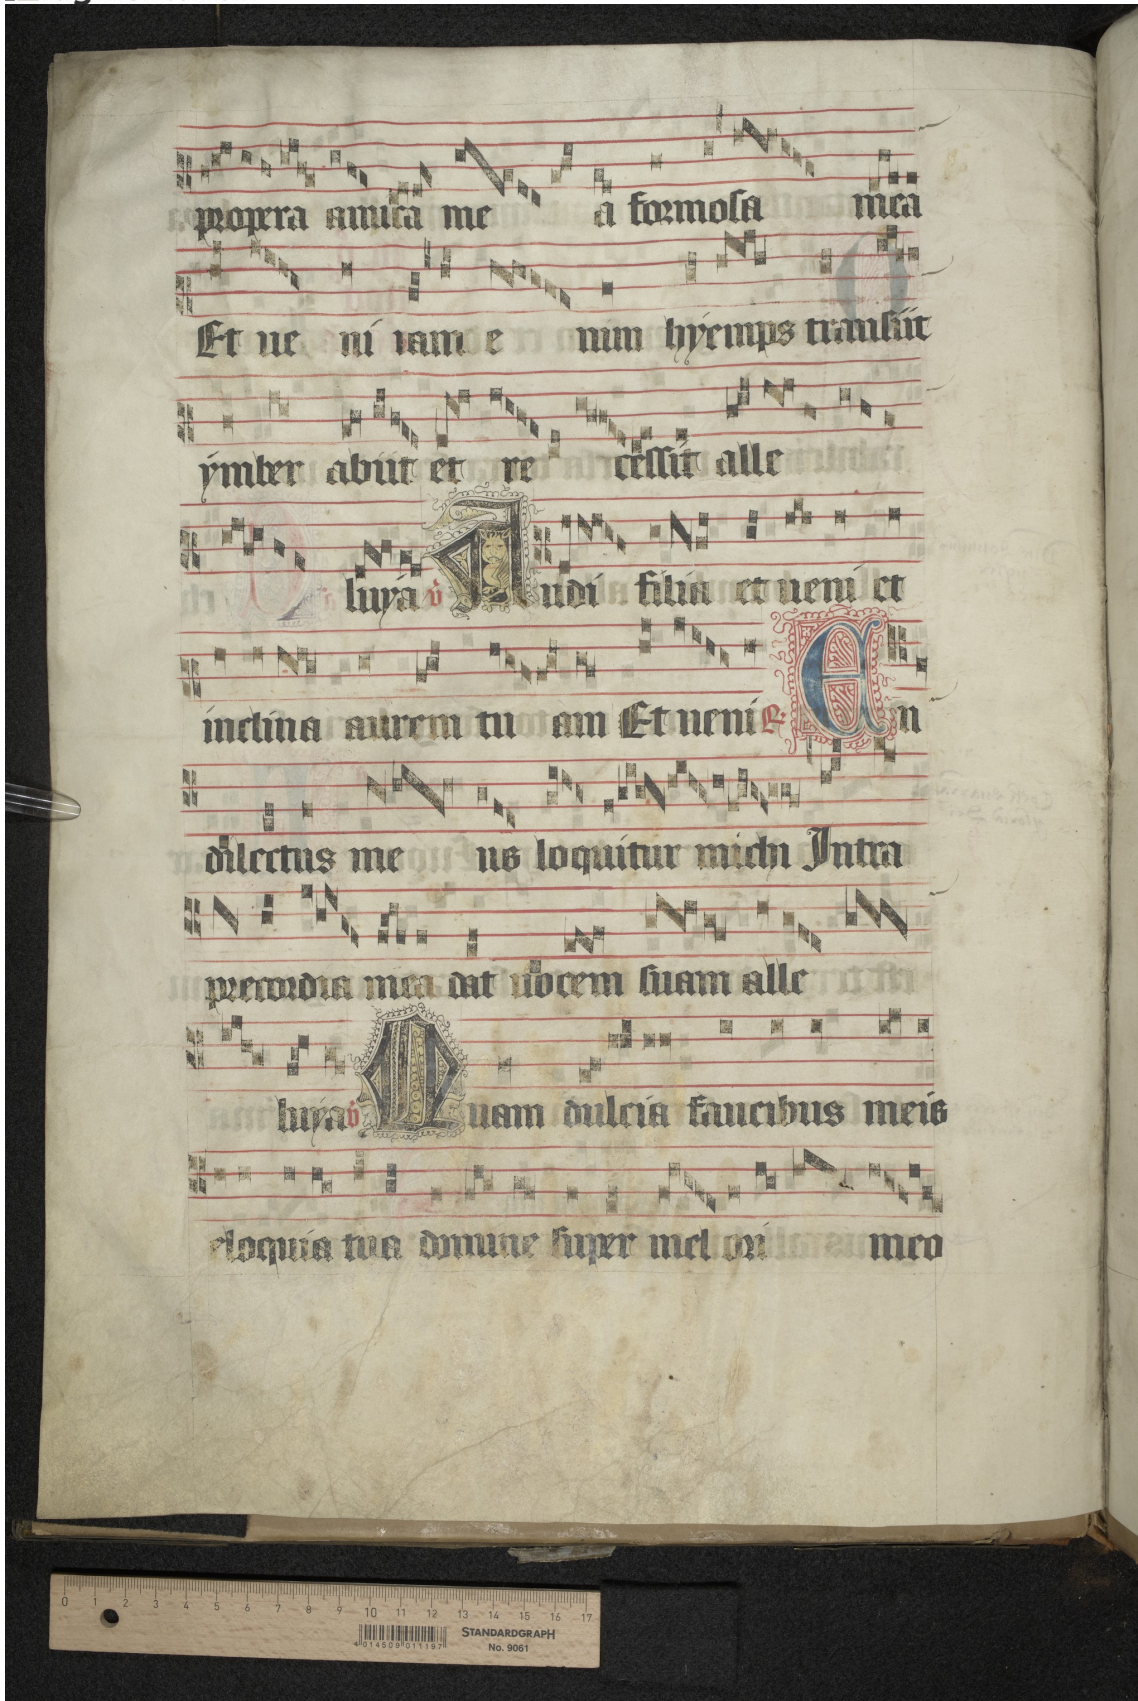 propera amica me a formosa mea
Et ue ni iam e nim hyemps transiit
ymber abiit et re cessit alle
luya v Audi filia et ueni et
inclina aurem tu am Et ueni R. En
dilectus me us loquitur michi Intra
precordia mea dat uocem suam alle
luya v Quam dulcia faucibus meis
eloquia tua domine super mel ori meo
0 1 2 3 4 5 6 7 8 9 10 11 12 13 14 15 16 17
4 014509 011197
STANDARDGRAPH
No. 9061